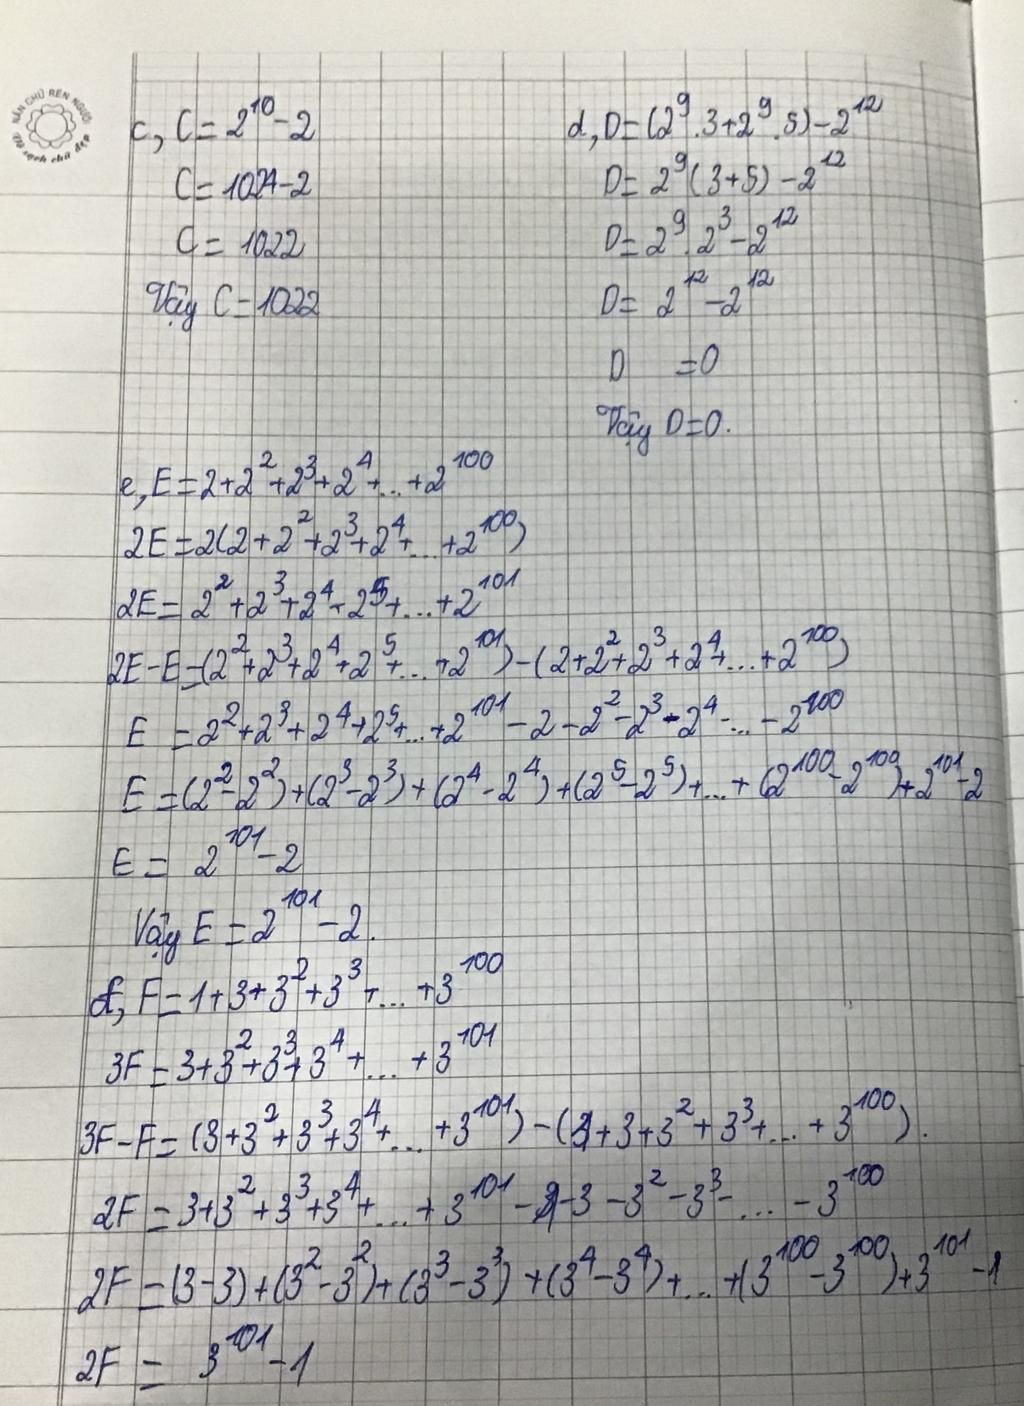 NẮN CHỮ RÈN NGƯỜI
Vở sạch chữ đẹp
c, C = 2^10 - 2
C = 1024 - 2
C = 1022
Vậy C = 1022
d, D = (2^9 . 3 + 2^9 . 5) - 2^12
D = 2^9 (3 + 5) - 2^12
D = 2^9 . 2^3 - 2^12
D = 2^12 - 2^12
D = 0
Vậy D = 0.
e, E = 2 + 2^2 + 2^3 + 2^4 + ... + 2^100
2E = 2(2 + 2^2 + 2^3 + 2^4 + ... + 2^100)
2E = 2^2 + 2^3 + 2^4 + 2^5 + ... + 2^101
2E - E = (2^2 + 2^3 + 2^4 + 2^5 + ... + 2^101) - (2 + 2^2 + 2^3 + 2^4 + ... + 2^100)
E = 2^2 + 2^3 + 2^4 + 2^5 + ... + 2^101 - 2 - 2^2 - 2^3 - 2^4 - ... - 2^100
E = (2^2 - 2^2) + (2^3 - 2^3) + (2^4 - 2^4) + (2^5 - 2^5) + ... + (2^100 - 2^100) + 2^101 - 2
E = 2^101 - 2
Vậy E = 2^101 - 2.
f, F = 1 + 3 + 3^2 + 3^3 + ... + 3^100
3F = 3 + 3^2 + 3^3 + 3^4 + ... + 3^101
3F - F = (3 + 3^2 + 3^3 + 3^4 + ... + 3^101) - (1 + 3 + 3^2 + 3^3 + ... + 3^100).
2F = 3 + 3^2 + 3^3 + 3^4 + ... + 3^101 - 1 - 3 - 3^2 - 3^3 - ... - 3^100
2F = (3 - 3) + (3^2 - 3^2) + (3^3 - 3^3) + (3^4 - 3^4) + ... + (3^100 - 3^100) + 3^101 - 1
2F = 3^101 - 1